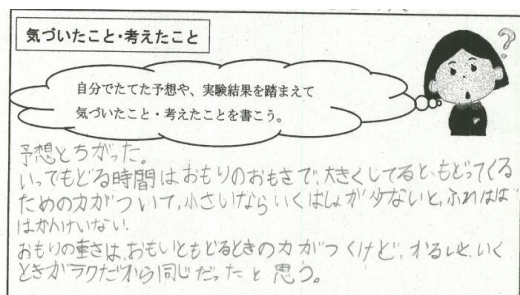 気づいたこと・考えたこと
自分でたてた予想や、実験結果を踏まえて
気づいたこと・考えたことを書こう。
?
予想とちがった。
いってもどる時間はおもりのおもさで、大きくしてると、もどってくる
ための力がついて、小さいならいくばしょが少ないと、ふれはば
はかんけいない。
おもりの重さは、おもいともどるときの力がつくけど、かるいと、いく
ときがラクだから同じだったと思う。